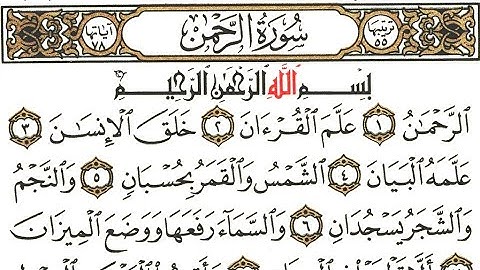 ترتيبها ٥٥ سُورَةُ الرَّحْمٰن آياتها ٧٨
بِسْمِ ٱللَّهِ ٱلرَّحْمَٰنِ ٱلرَّحِيمِ
ٱلرَّحْمَٰنُ ١ عَلَّمَ ٱلْقُرْءَانَ ٢ خَلَقَ ٱلْإِنسَٰنَ ٣
عَلَّمَهُ ٱلْبَيَانَ ٤ ٱلشَّمْسُ وَٱلْقَمَرُ بِحُسْبَانٍ ٥ وَٱلنَّجْمُ
وَٱلشَّجَرُ يَسْجُدَانِ ٦ وَٱلسَّمَآءَ رَفَعَهَا وَوَضَعَ ٱلْمِيزَانَ